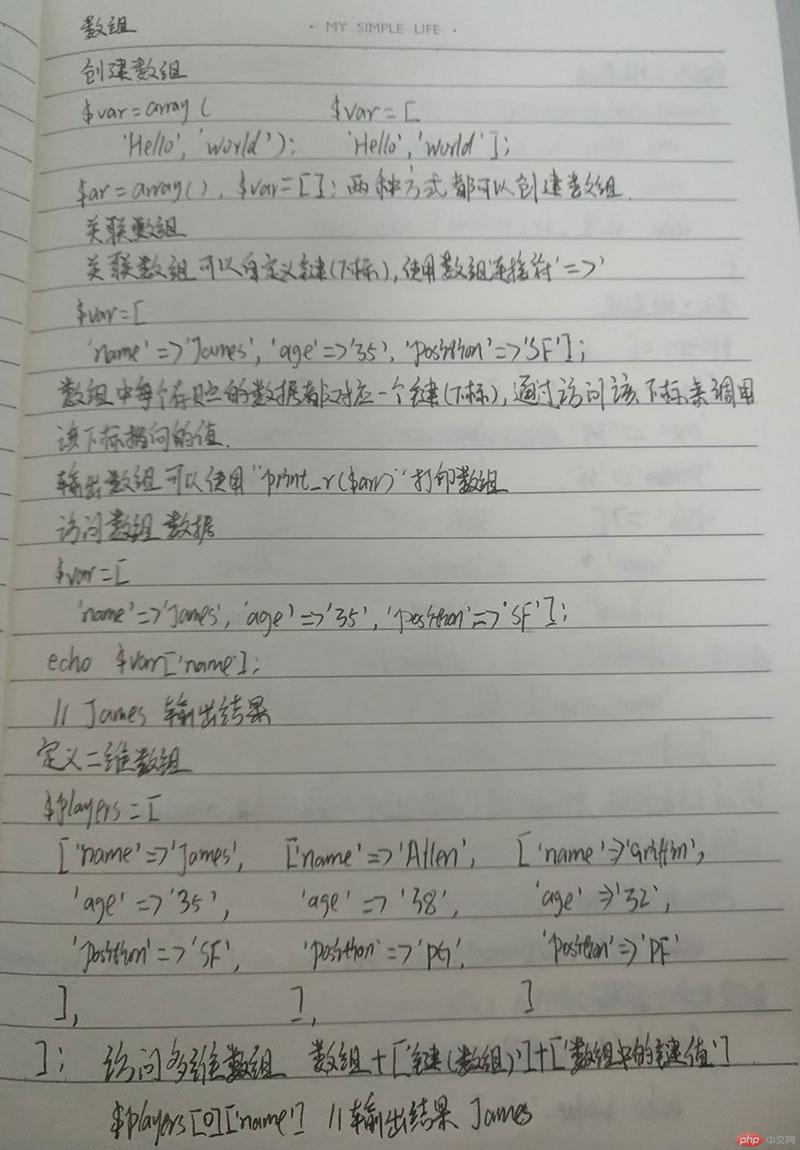 · MY SIMPLE LIFE ·
数组
创建数组
$var=array( $var=[
'Hello', 'world'); 'Hello','world'];
$ar=array(), $var=[]; 两种方式都可以创建数组.
关联数组
关联数组可以自定义键(下标),使用数组连接符'=>'
$var=[
'name'=>'James', 'age'=>'35', 'position'=>'SF'];
数组中每个存贮的数据都对应一个键(下标),通过访问该下标来调用
该下标指向的值.
输出数组可以使用"print_r($ar)"打印数组
访问数组数据
$var=[
'name'=>'James', 'age'=>'35', 'position'=>'SF'];
echo $var['name'];
// James 输出结果
定义二维数组
$players=[
['name'=>'James', ['name'=>'Allen', ['name'=>'Griffin',
'age'=>'35', 'age'=>'38', 'age'=>'32',
'position'=>'SF', 'position'=>'PG', 'position'=>'PF'
], ], ]
]; 访问多维数组 数组+['键(数组)']+['数组中的键值']
$players[0]['name'] //输出结果 James
php 中文网